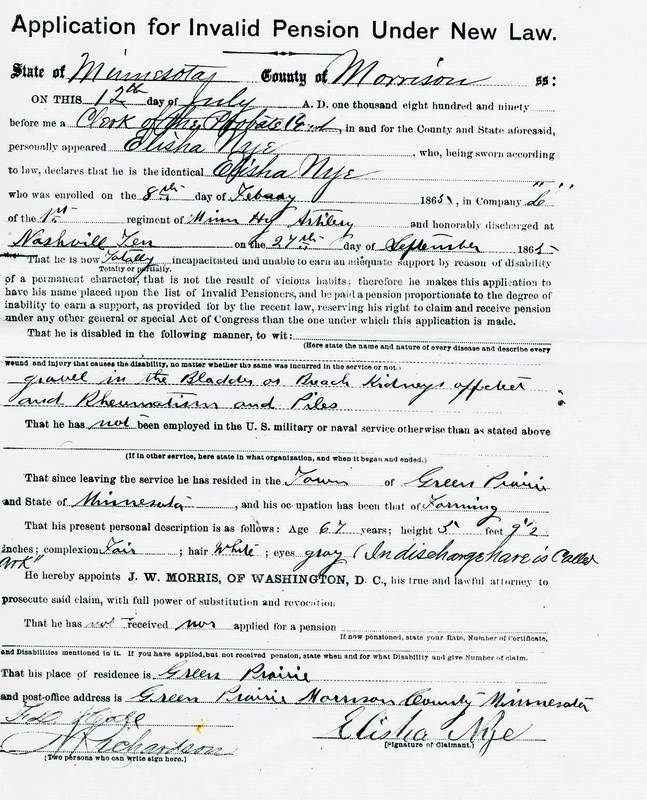 Application for Invalid Pension Under New Law.
State of Minnesota, County of Morrison ss:
ON THIS 12th day of July A. D. one thousand eight hundred and ninety
before me a Clerk of the Probate Court, in and for the County and State aforesaid,
personally appeared Elisha Nye, who, being sworn according
to law, declares that he is the identical Elisha Nye
who was enrolled on the 8th day of Febuary 1865, in Company "L"
of the 1st regiment of Minn Hy Artilery and honorably discharged at
Nashvill Ten on the 27th day of September 1865
That he is now Totally incapacitated and unable to earn an adequate support by reason of disability
Totally or partially.
of a permanent character, that is not the result of vicious habits; therefore he makes this application to
have his name placed upon the list of Invalid Pensioners, and be paid a pension proportionate to the degree of
inability to earn a support, as provided for by the recent law, reserving his right to claim and receive pension
under any other general or special Act of Congress than the one under which this application is made.
That he is disabled in the following manner, to wit:
(Here state the name and nature of every disease and describe every
wound and injury that causes the disability, no matter whether the same was incurred in the service or not.)
gravel in the Bladder or Kidneys
and Rheumatism and Piles
That he has not been employed in the U. S. military or naval service otherwise than as stated above
(If in other service, here state in what organization, and when it began and ended.)
That since leaving the service he has resided in the Town of Green Prairie
and State of Minnesota, and his occupation has been that of Farming
That his present personal description is as follows: Age 67 years; height 5 feet 9½
inches; complexion Fair; hair White; eyes gray (In discharge hare is Caller
He hereby appoints J. W. MORRIS, OF WASHINGTON, D. C., his true and lawful attorney to
prosecute said claim, with full power of substitution and revocation
That he has not received nor applied for a pension
If now pensioned, state your Rate, Number of Certificate,
and Disabilities mentioned in it. If you have applied, but not received pension, state when and for what Disability and give Number of claim.
That his place of residence is Green Prairie
and post-office address is Green Prairie Morrison County Minnesota
Richardson Elisha Nye
[Two persons who can write sign here.] [Signature of Claimant.]